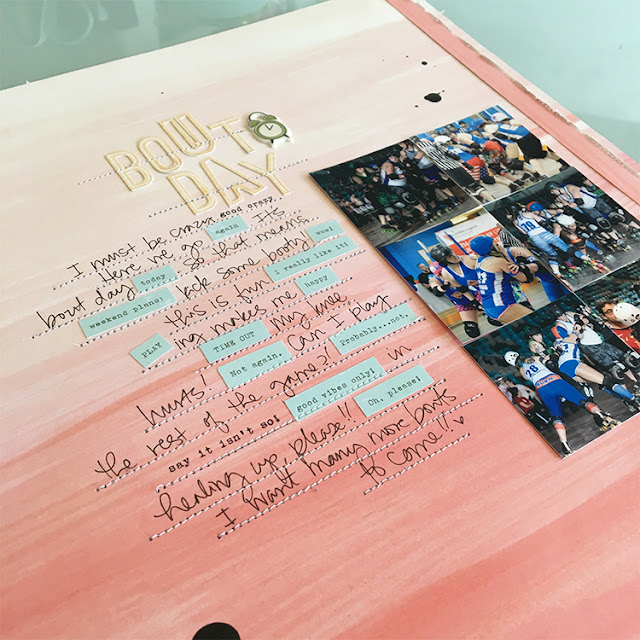 BOUT
DAY
I must be crazy, good crazy.
Here we go again It's
bout day today so that means
weekend plans: kick some booty woo!
this is fun I really like it!
PLAY ing makes me happy
TIME OUT my knee
hurts! Not again. Can I play
the rest of the game?! Probably...not.
say it isn't so! good vibes only! in
healing up please!! Oh, please!
I want many more bouts
to come!!
28
28